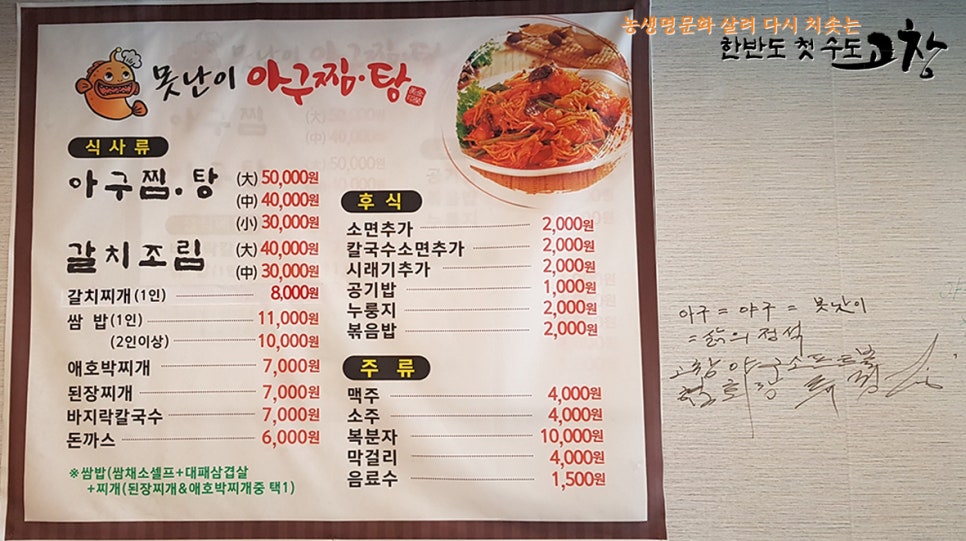 농생명문화 살려 다시 치솟는
한반도 첫 수도 고창
못난이 아구찜·탕
식사류
아구찜.탕 (大) 50,000원
(中) 40,000원
(小) 30,000원
갈치조림 (大) 40,000원
(中) 30,000원
갈치찌개(1인) 8,000원
쌈 밥(1인) 11,000원
(2인이상) 10,000원
애호박찌개 7,000원
된장찌개 7,000원
바지락칼국수 7,000원
돈까스 6,000원
※쌈밥(쌈채소셀프+대패삼겹살
+찌개(된장찌개&애호박찌개중 택1)
후식
소면추가 2,000원
칼국수소면추가 2,000원
시래기추가 2,000원
공기밥 1,000원
누룽지 2,000원
볶음밥 2,000원
주류
맥주 4,000원
소주 4,000원
복분자 10,000원
막걸리 4,000원
음료수 1,500원
아구 = 야구 = 못난이
= 삶의 정석
고창 야구소프트볼
협회장